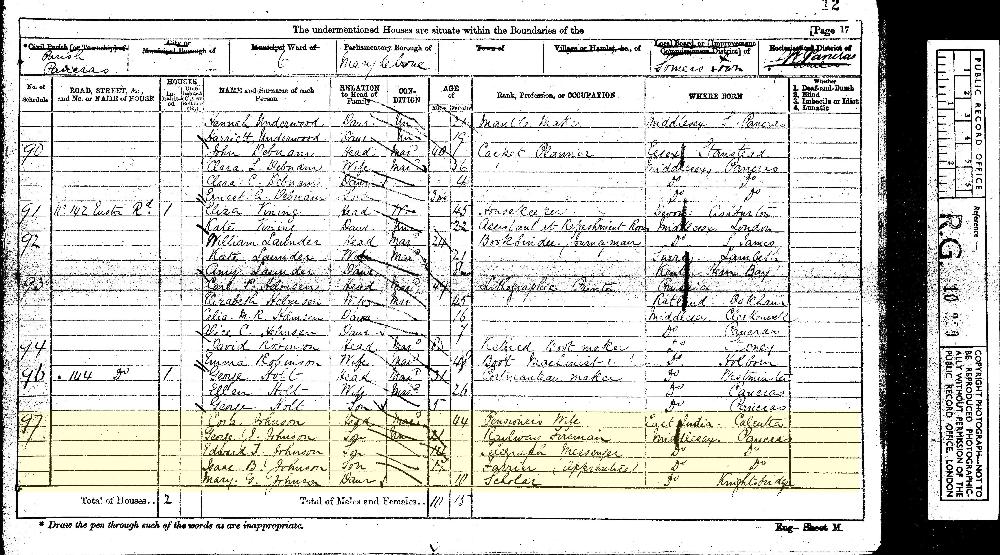 12
The undermentioned Houses are situate within the Boundaries of the [Page 17
*Civil Parish [or Township] of City or Municipal Borough of Municipal Ward of Parliamentary Borough of Town of Village or Hamlet, &c., of Local Board or [Improvement Commissioners District] of Ecclesiastical District of
Parish Pancras Marylebone Somers Town St Pancras
No. of Schedule ROAD, STREET, &c., and No. or NAME of HOUSE HOUSES NAME and Surname of each Person RELATION to Head of Family CONDITION AGE of Rank, Profession, or OCCUPATION WHERE BORN Whether 1. Deaf-and-Dumb 2. Blind 3. Imbecile or Idiot 4. Lunatic
Hannah Underwood Daur Un 21 Mantle Maker Middlesex St Pancras
Harriett Underwood Daur Un 19
90 John Debnam Head Mar 40 Carpet Planner Essex Stanstead
Clara L Debnam Wife Mar 36 Middlesex Pancras
Clara C. Debnam Daur 4 Do Do
Ernest A. Debnam Son Do Do
91 142 Euston Rd 1 Eliza Vining Head 45 Housekeeper Devon
Kate Vining Daur Un 22 Assistant at Refreshment Room Middlesex London
92 William Launder Head Mar 24 Bookbinder Do St James
Kate Launder Wife Mar 21 Surrey Lambeth
Amy Launder Daur Kent Herne Bay
93 Carl Head Mar 44 Lithographic Printer
Elizabeth Wife Mar 45 Rutland Oakham
16 Middlesex Clerkenwell
Alice C. Daur 7 Do Pancras
94 David Robinson Head Mar Retired Boot maker Do
Emma Robinson Wife Mar 49 Boot Machinist Do Holborn
96 144 Do 1 George Holt Head Mar 31 Portmanteau maker Do Westminster
Ellen Holt Wife Mar 26 Do Pancras
George Holt Son 5 Do Pancras
97 Cora Johnson Head Mar 44 Pensioners Wife East India Calcutta
George Johnson Son Un 21 Railway Fireman Middlesex Pancras
Edward Johnson Son Telegraph Messenger Do Do
Isaac B. Johnson Son Farrier (Apprentice) Do Do
Mary G. Johnson Daur 10 Scholar Do Knightsbridge
Total of Houses.. 2 Total of Males and Females.. 10 15
* Draw the pen through such of the words as are inappropriate. Eng—Sheet M.
PUBLIC RECORD OFFICE
Reference:—
RG 10
COPYRIGHT PHOTOGRAPH-NOT TO BE REPRODUCED PHOTOGRAPHICALLY WITHOUT PERMISSION OF THE PUBLIC RECORD OFFICE, LONDON